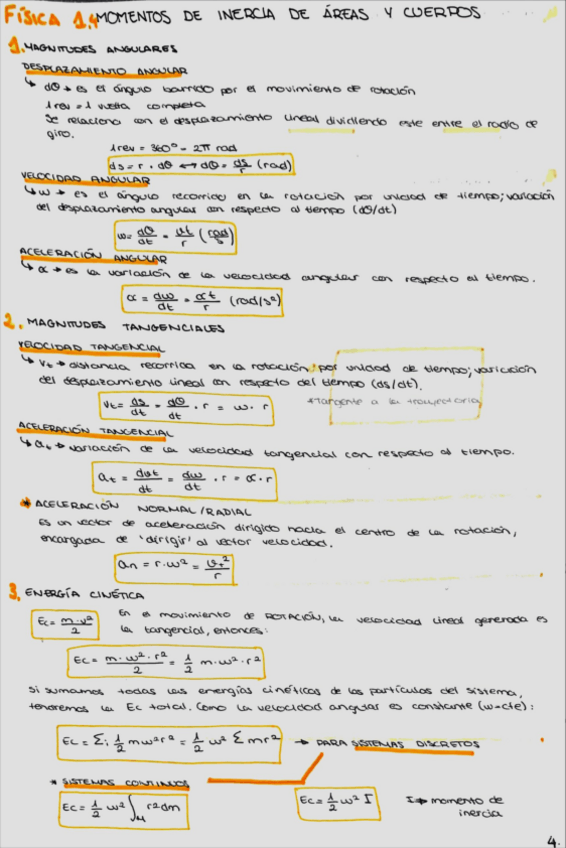 FÍSICA 1.4 MOMENTOS DE INERCIA DE ÁREAS Y CUERPOS
1. MAGNITUDES ANGULARES
DESPLAZAMIENTO ANGULAR
↳ dθ → es el ángulo barrido por el movimiento de rotación
1 rev = 1 vuelta completa
Se relaciona con el desplazamiento lineal dividiendo este entre el radio de
giro.
1 rev = 360° = 2π rad
ds = r · dθ ↔ dθ = ds/r (rad)
VELOCIDAD ANGULAR
↳ w → es el ángulo recorrido en la rotación por unidad de tiempo; variación
del desplazamiento angular con respecto al tiempo (dθ/dt)
w = dθ/dt = vt/r (rad/s)
ACELERACIÓN ANGULAR
↳ α → es la variación de la velocidad angular con respecto al tiempo.
α = dw/dt = αt/r (rad/s²)
2. MAGNITUDES TANGENCIALES
VELOCIDAD TANGENCIAL
↳ vt → distancia recorrida en la rotación por unidad de tiempo; variación
del desplazamiento lineal con respecto del tiempo (ds/dt).
vt = ds/dt = dθ/dt · r = w · r
*Tangente a la trayectoria
ACELERACIÓN TANGENCIAL
↳ at → variación de la velocidad tangencial con respecto al tiempo.
at = dvt/dt = dw/dt · r = α · r
* ACELERACIÓN NORMAL/RADIAL
Es un vector de aceleración dirigido hacia el centro de la rotación,
encargada de 'dirigir' al vector velocidad.
an = r · w² = vt²/r
3. ENERGÍA CINÉTICA
Ec = m·v²/2
En el movimiento de ROTACIÓN, la velocidad lineal generada es
la tangencial, entonces:
Ec = m · w² · r²/2 = 1/2 m · w² · r²
Si sumamos todas las energías cinéticas de las partículas del sistema,
tendremos la Ec total. Como la velocidad angular es constante (w=cte):
Ec = Σi 1/2 mw²r² = 1/2 w² Σmr² → PARA SISTEMAS DISCRETOS
* SISTEMAS CONTINUOS
Ec = 1/2 w² ∫M r²dm
Ec = 1/2 w² I
I → momento de
inercia
4.